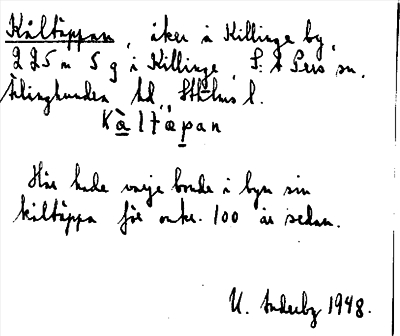 Kåltäppan, åker å Killinge by,
225 m S g i Killinge, S:t Pers sn,
Ærlinghundra hd, Sthlms l.
Kå̀ltäpan
Här hade varje bonde i byn sin
kåltäppa för omkr. 100 år sedan.
U. Anderby 1948.